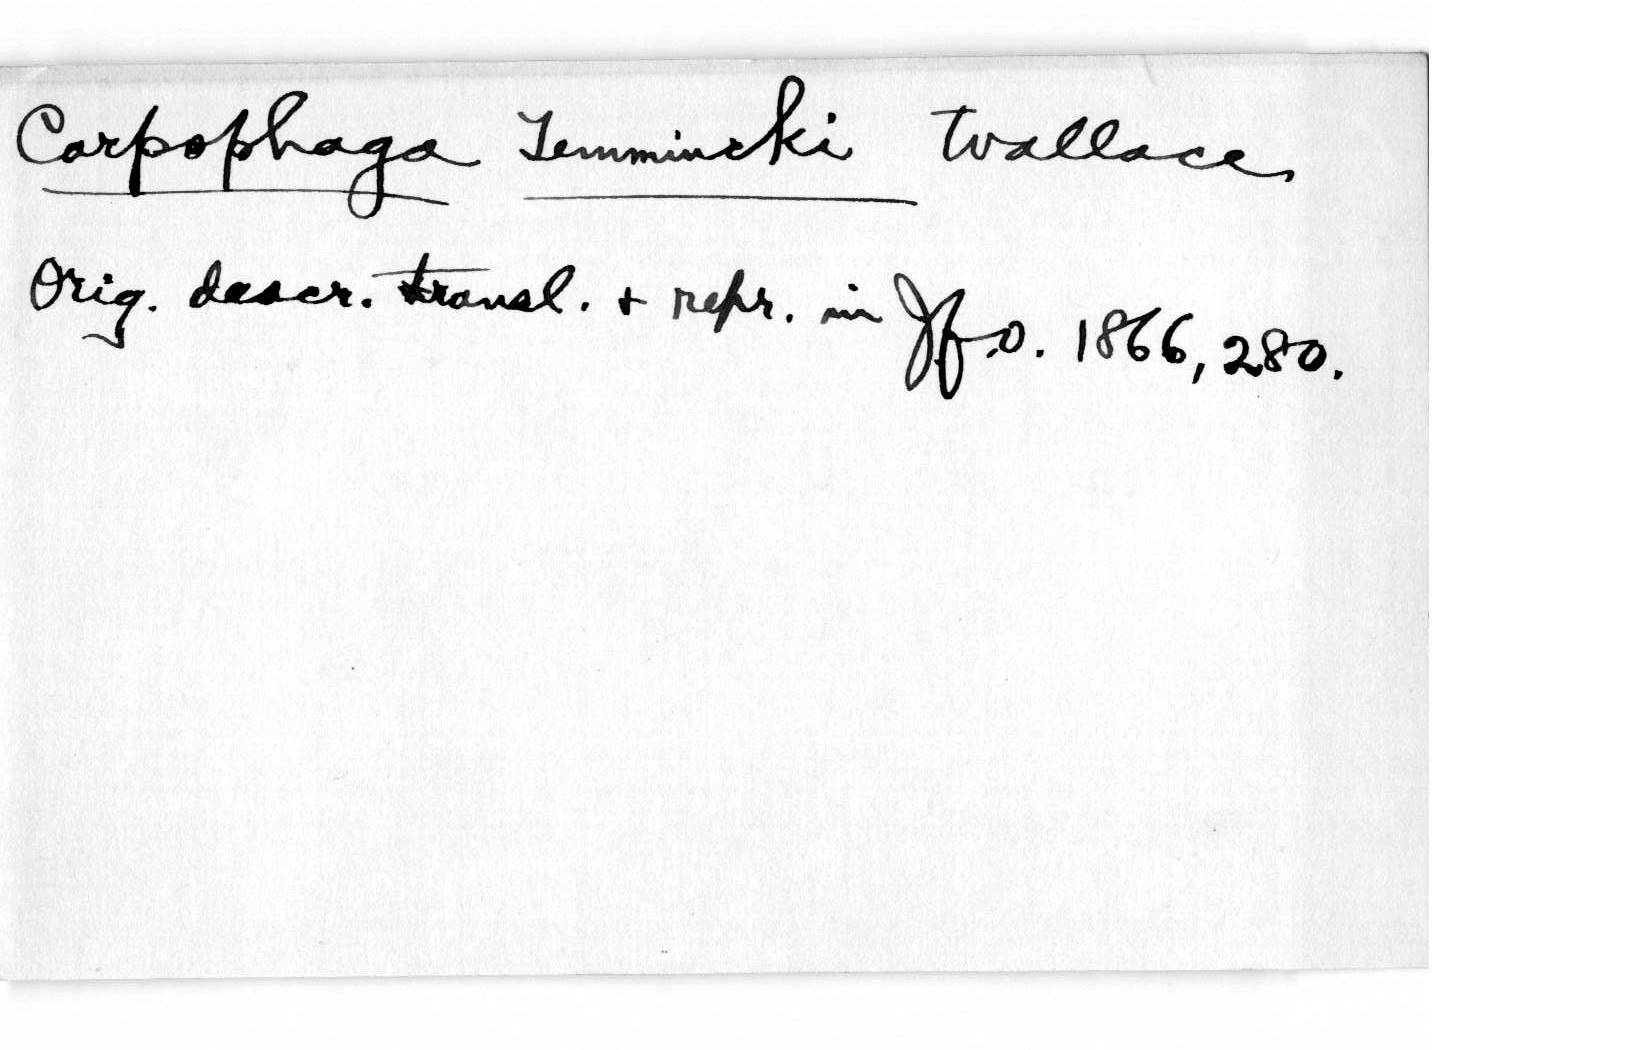 Carpophaga Temmincki Wallace
Orig. descr. transl. + repr. in Jf.O. 1866, 280.